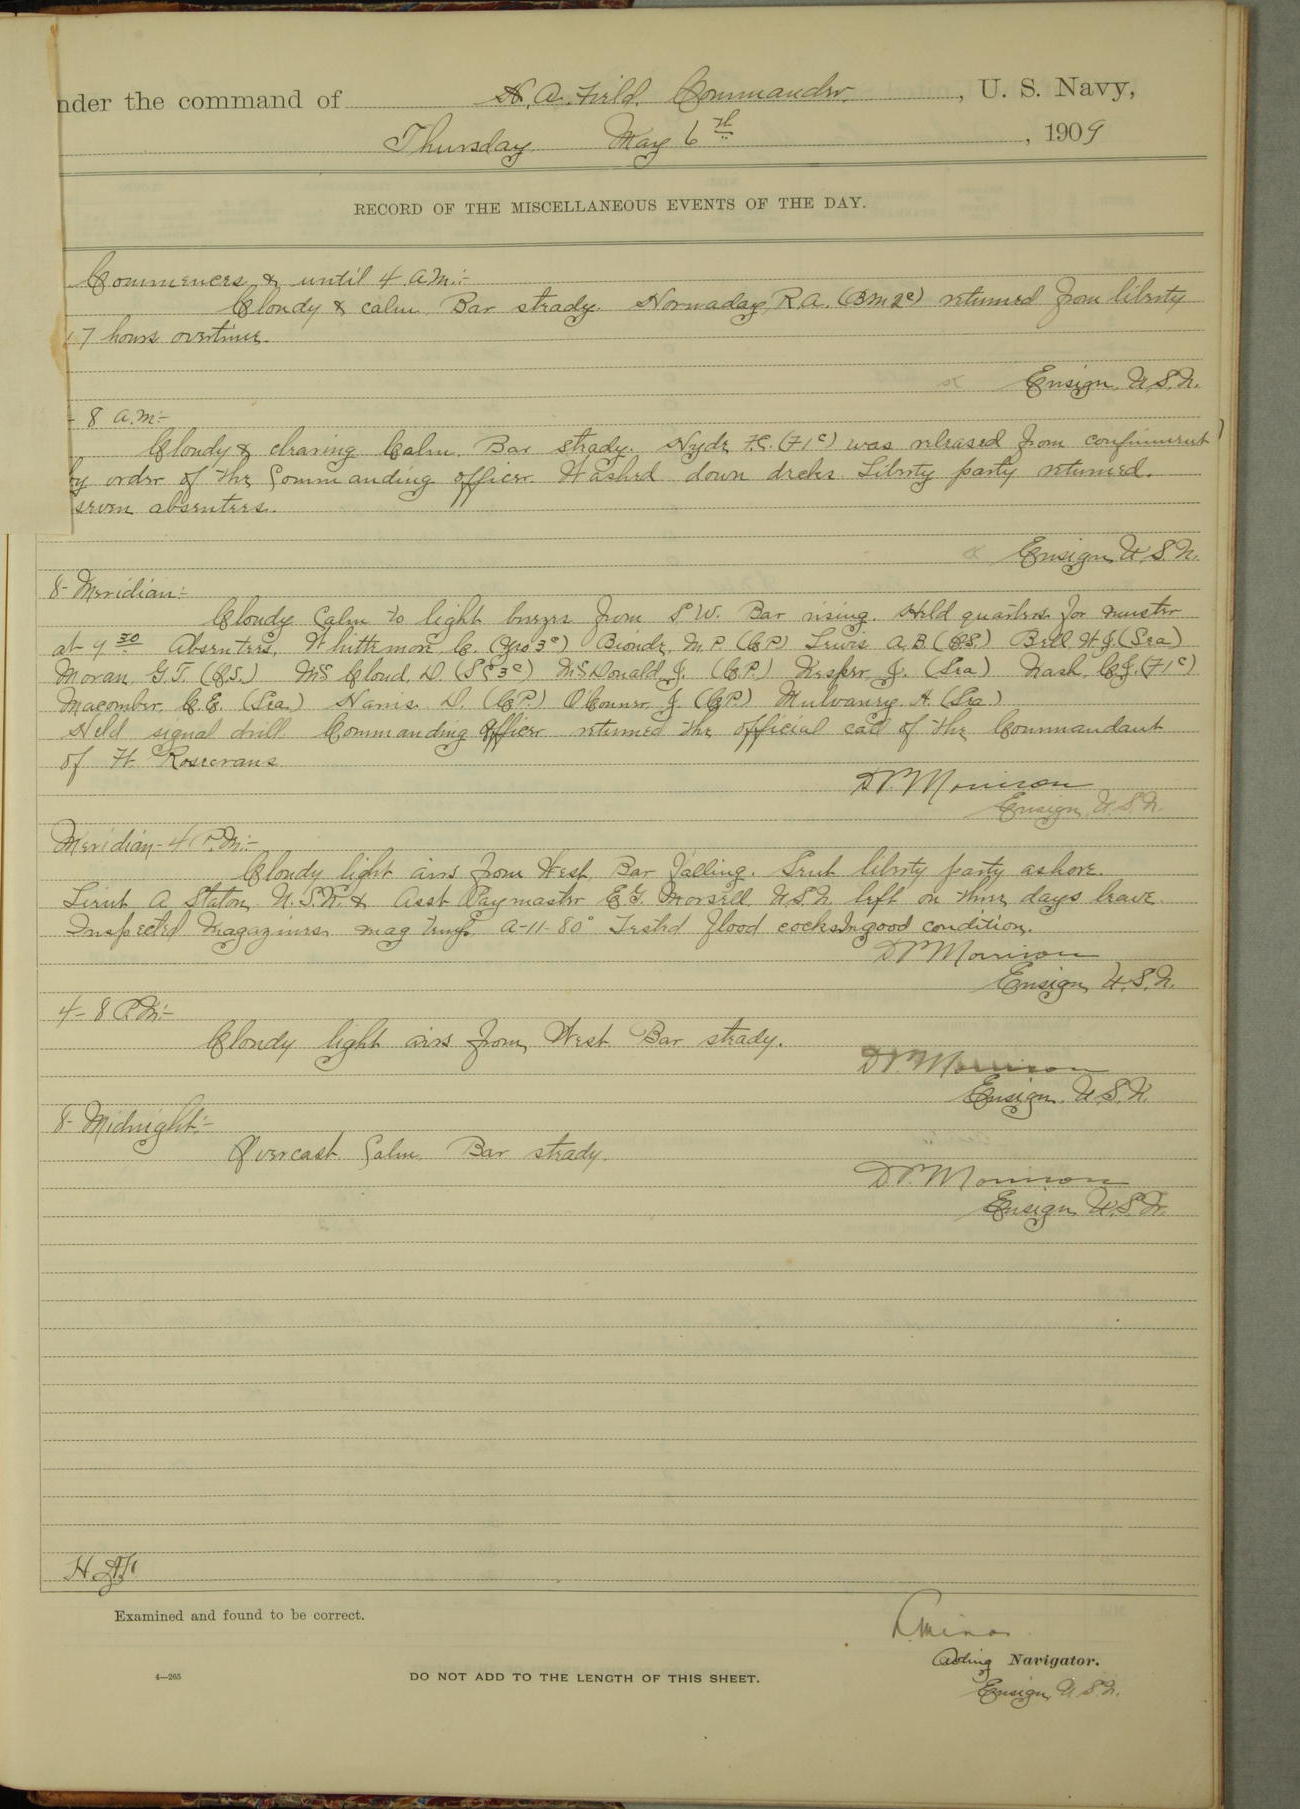 nder the command of H. A. Field, Commander, U. S. Navy,
Thursday May 6th, 1909
RECORD OF THE MISCELLANEOUS EVENTS OF THE DAY.
Commences & until 4 A.M.:-
Cloudy & calm. Bar steady. Hornaday, R.A. (BM2c) returned from liberty
17 hours overtime.
Ensign, U.S.N.
- 8 A.M:-
Cloudy & clearing Calm. Bar steady. Hyde, F.C. (F1c) was released from confinement
by order of the Commanding officer. Washed down decks. Liberty party returned.
seven absentees.
Ensign, U.S.N.
8- Meridian:-
Cloudy Calm to light breezes from S.W. Bar rising. Held quarters for muster
at 9 30 Absentees, Whittemore, C. (Yeo 3c) Bionde, M.P. (C.P.) Lewis A.B. (C.S.) Bell W.J. (Sea)
Moran G.T. (C.S.) McCloud, D. (SC3c) McDonald, J. (C.P.) Kesper J. (Sea) Nash, C.J. (F1c)
Macomber, C.E. (Sea.) Harris D. (C.P.) O'Connor J. (C.P.) Mulvaney H. (Sea.)
Held signal drill. Commanding Officer returned the official call of the Commandant
of Ft. Rosecrans
D.P. Morrison
Ensign, U.S.N.
Meridian- 4 P.M:-
Cloudy light airs from West, Bar falling. Sent liberty party ashore.
Lieut A Staton, U.S.N. & Asst Paymaster E.G. Morsell U.S.N. left on three days leave.
Inspected Magazines mag temp. A-11-80° Tested flood cocks In good condition.
D.P. Morrison
Ensign, U.S.N.
4- 8 P.M:-
Cloudy light airs from, West Bar steady.
D.P. Morrison
Ensign, U.S.N.
8- Midnight:-
Overcast Calm. Bar steady.
D.P. Morrison
Ensign, U.S.N.
H.A.F.
Examined and found to be correct.
Acting Navigator.
4—265
DO NOT ADD TO THE LENGTH OF THIS SHEET.
Ensign, U.S.N.